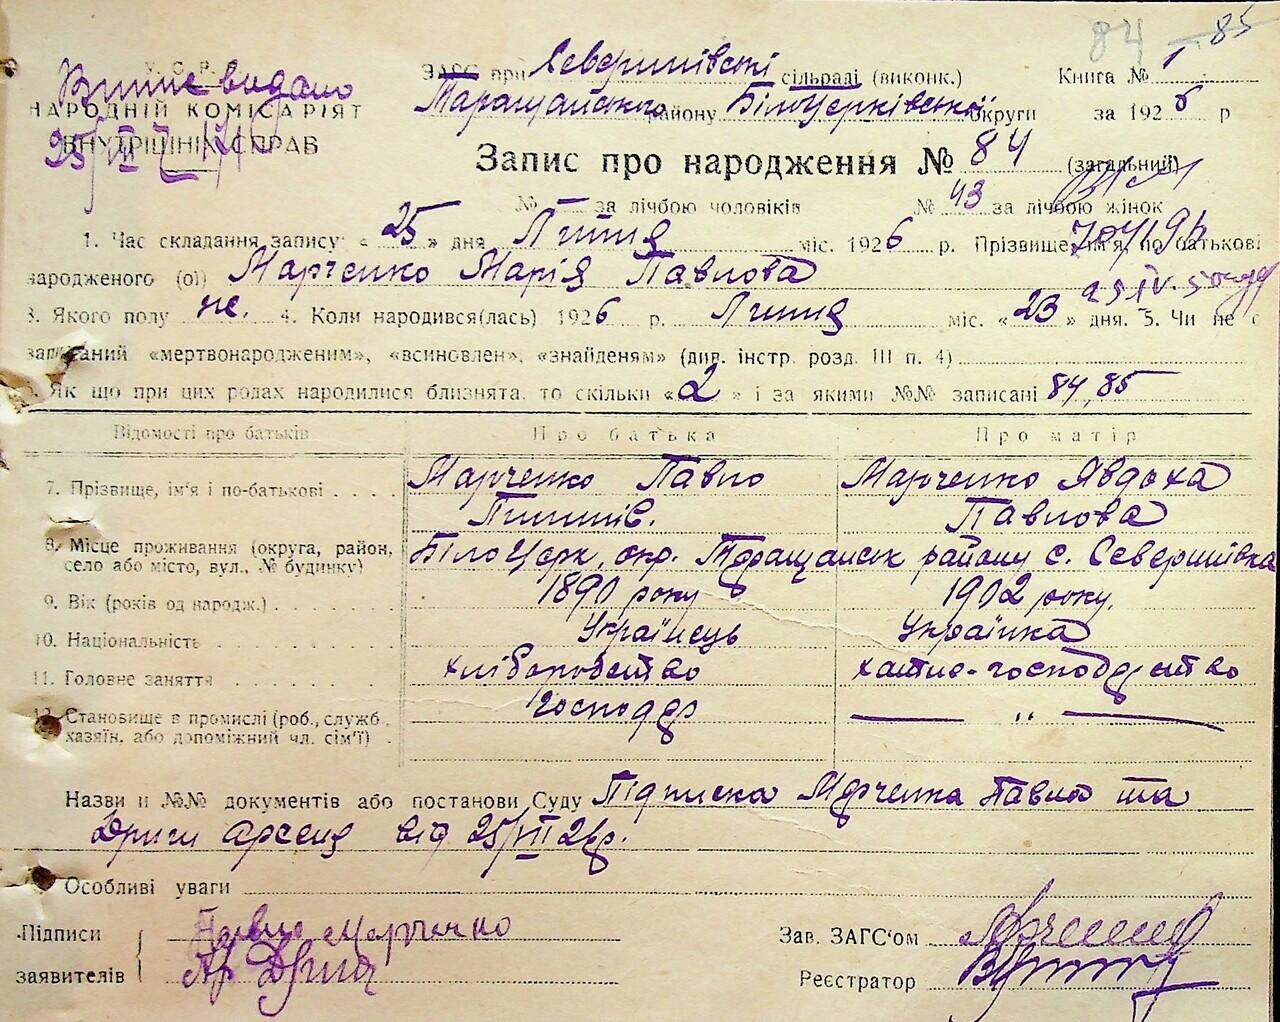 84 85
У.С.Р.Р.
Витяг видано
НАРОДНІЙ КОМІСАРІЯТ
ВНУТРІШНІХ СПРАВ
25/III
ЗАГС при Северинівській сільраді (виконк.) Книга № 1
Таращанського району Білоцерківської округи за 1926 р
Запис про народження № 84 (загальний)
№ — за лічбою чоловіків № 43 за лічбою жінок
1. Час складання запису: « 25 » дня Липня міс. 1926 р. Прізвище, ім'я, по батькові
народженого (ої) Марченко Марія Павлова
3. Якого полу жс. 4. Коли народився(лась) 1926 р. Липня міс. «23» дня. 5. Чи не є
записаний «мертвонародженим», «всиновлен», «знайденям» (див. інстр. розд. III п. 4)
Як що при цих родах народилися близнята, то скільки «2» і за якими №№ записані 84, 85
Відомості про батьків Про батька Про матір
7. Прізвище, ім'я і по-батькові Марченко Павло Марченко Явдоха
Павлова
8. Місце проживання (округа, район, село або місто, вул., № будинку) БілоЦерк. окр. Таращанськ району с. Северинівка
9. Вік (років од народж.) 1890 року 1902 року.
10. Національність Українець Українка
11. Головне заняття хліборобство хатнє-господарство
12. Становище в промислі (роб., служб. Господар — „ —
хазяїн, або допоміжний чл. сім'ї)
Назви й №№ документів або постанови Суду Підписка Марченка Павла та
Дриги Арсена від 25/VII 26р.
Особливі уваги
Підписи Павло Марченко Зав. ЗАГС'ом
заявителів Ар Дрига Реєстратор